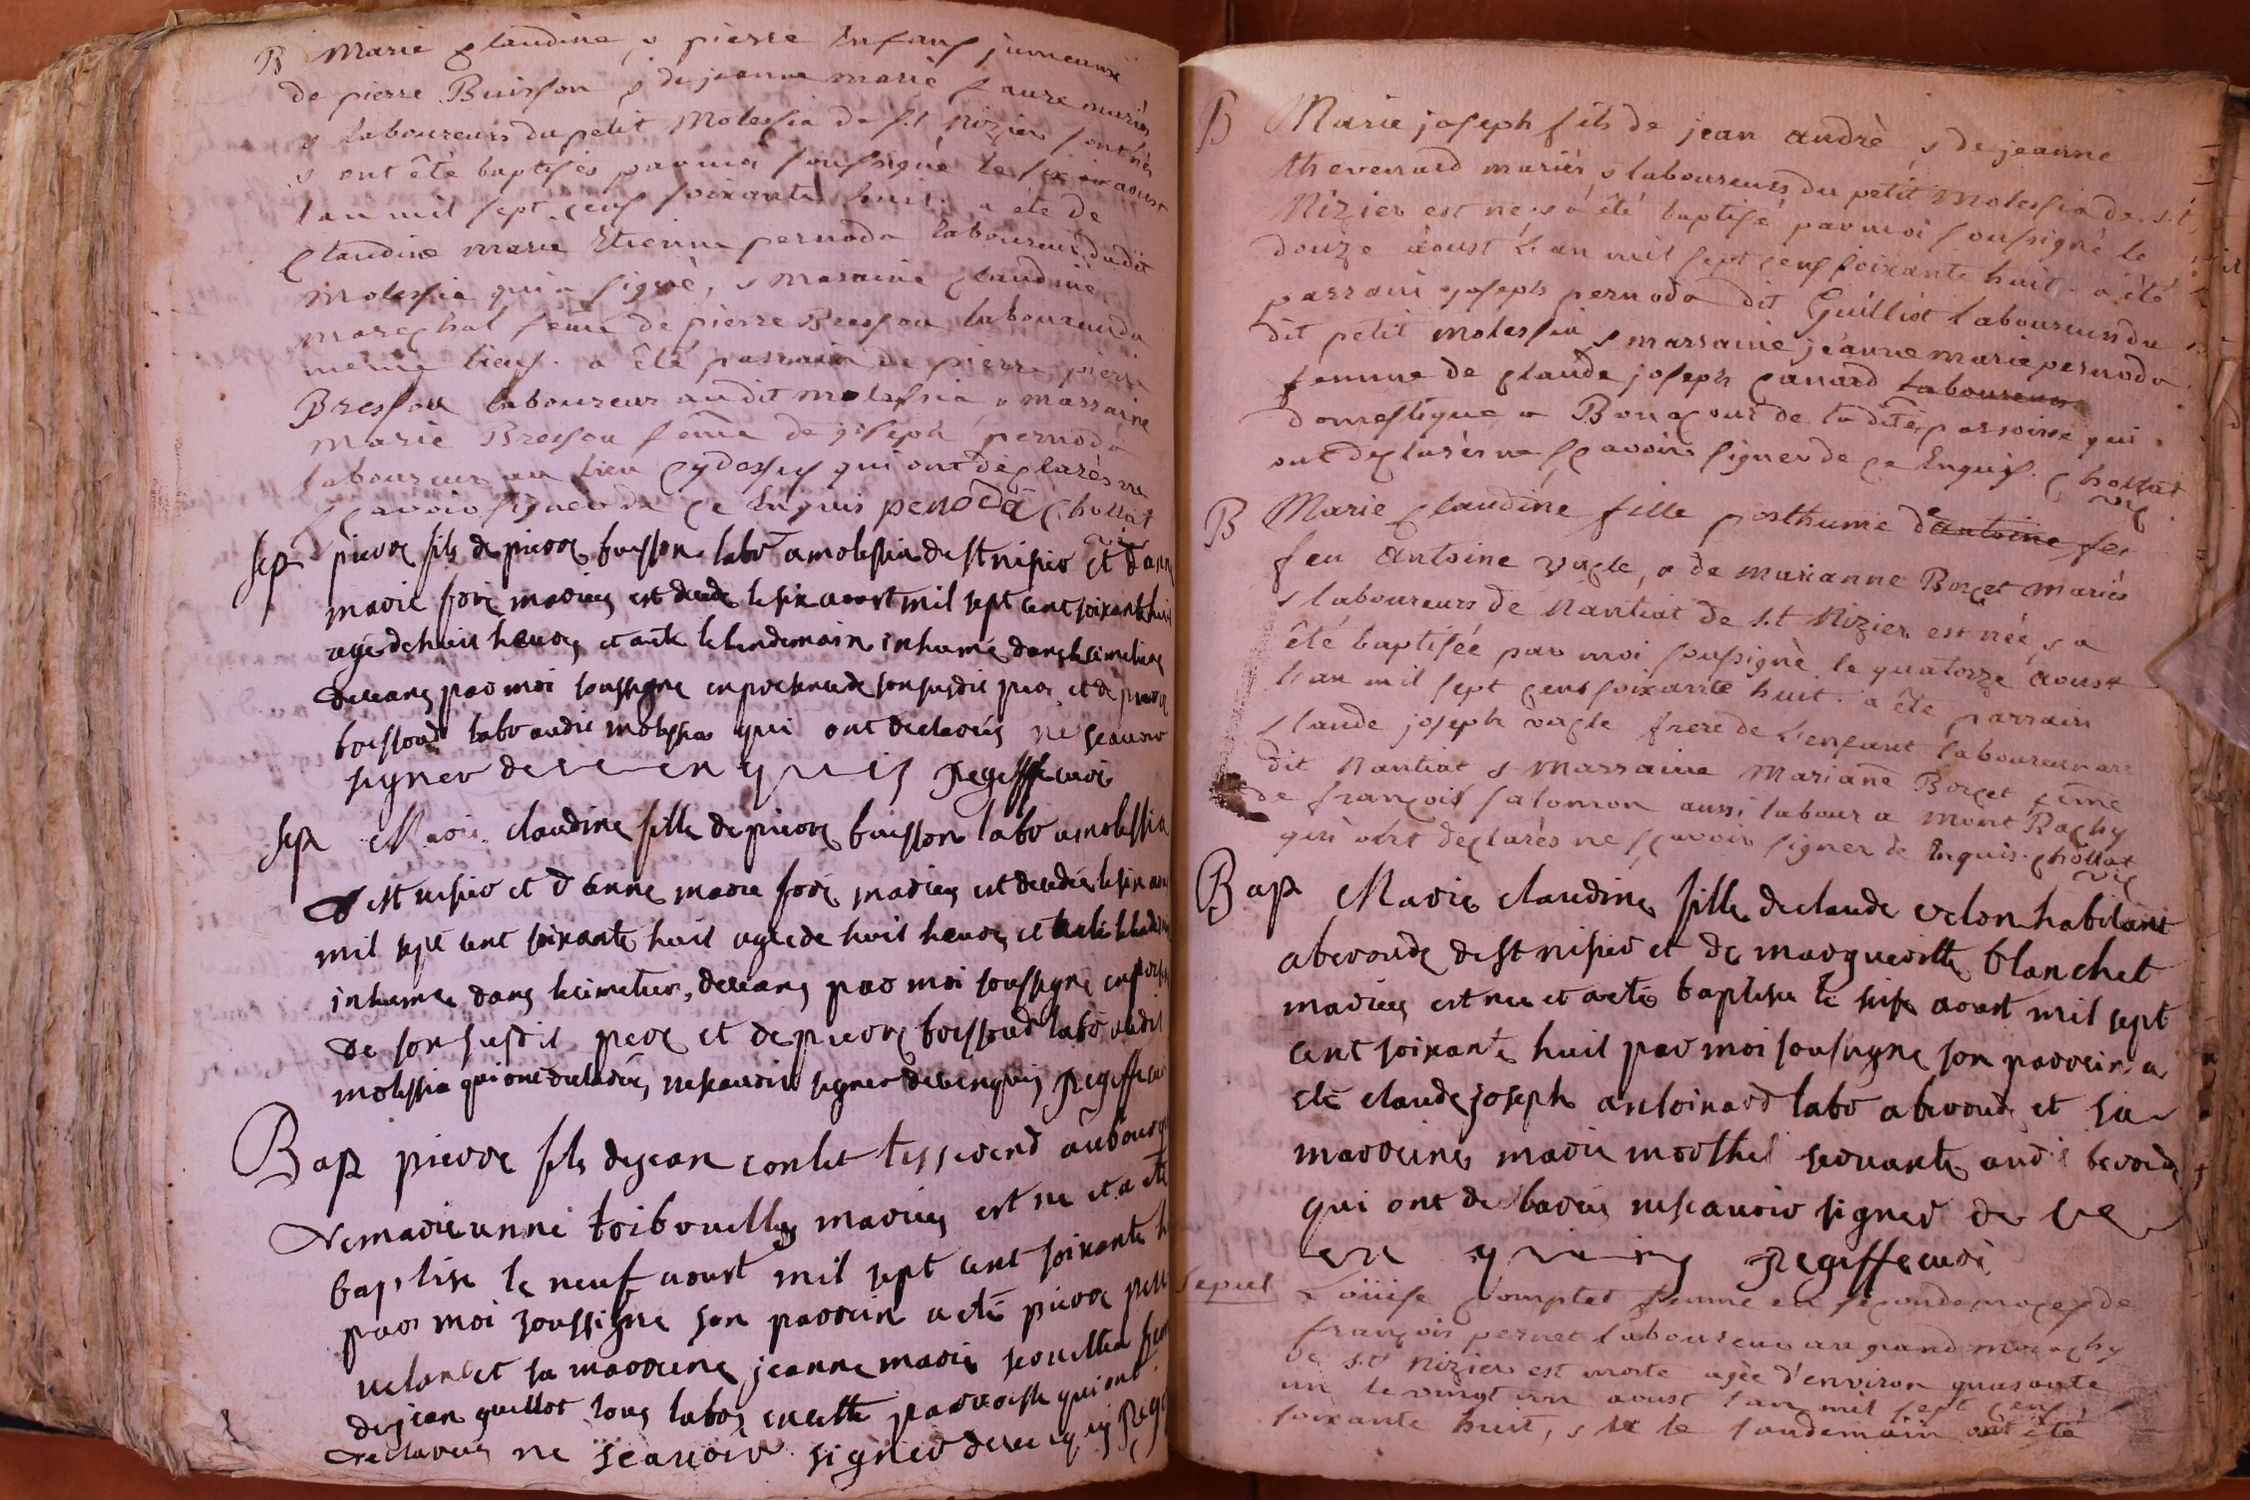 B Marie Claudine & pierre Enfans jumeaux
de pierre Buisson & de jeanne marie faure mariés
& laboureurs du petit Molessia de s.t Nizier sont nés
& ont êté baptisés par moi soussigné le six aoust
l'an mil sept cens soixante huit. a êté de
Claudine marie Etienne pernoda laboureur dudit
Molessia qui a signé, & maraine Claudine
marechal feme de pierre Bressou laboureur du
meme lieu. a êté parrain de pierre pierre
Bressou laboureur audit molessia & marraine
Marie Bressou feme de joseph pernoda
laboureur au lieu cydessus qui ont déclarés ne
sçavoir signer de ce Enquis penoda Chollat
vic
sep pierre fils de pierre buisson labr a molessia de st nisier et d'anne
marie fore mariés est decede le six aoust mil sept cent soixante huit
agé de huit heures et a eté le lendemain inhumé dans le simetiere
de ceans par moi soussigne en presence de son susdit pere et de pierre
boissoud labr audit molessia qui ont declarés ne sçauoir
signer de ce enquis
sep Marie claudine fille de pierre buisson labr a molessia
de st nisier et d'anne marie fore mariés est decedée le six aou
mil sept cent soixante huit agée de huit heures et a eté le lendemain
inhumee dans le simetiere de ceans par moi soussigne en presence
de son susdit pere et de pierre boissoud labr audit
molessia qui ont declarés ne scauoir signer de ce enquis
Bap pierre fils de jean contet tisserend au bourg
& de marie anne mariés est ne et a eté
baptise le neuf aoust mil sept cent soixante h
par moi soussigne son parrein a eté pierre
et sa marreine jeanne marie
de jean guillot tous labrs en cette parroisse qui ont
declarés ne scauoir signer de ce enquis
B Marie joseph fils de jean andrè & de jeanne
thevenard mariés & laboureurs du petit Molessia de s.t
Nizier est né & a êté baptisé par moi soussigné le
douze aoust l'an mil sept cens soixante huit. a êté
parrain joseph pernoda dit Guilliot laboureur du
dit petit Molessia & marraine jeanne marie pernoda
femme de claude joseph Canard laboureur
domestique a de la dite paroisse qui
ont declarés ne sçavoir signer de ce Enquis. Chollat
vic
B Marie Claudine fille posthume de antoine feu
feu Antoine vugle, & de marianne Borcet mariés
& laboureurs de Nantiat de s.t Nizier est née & a
êté baptisée par moi soussigné le quatorze aoust
l'an mil sept cens soixante huit. a êté parrain
claude joseph vugle frere de l'enfant laboureur au
dit Nantiat & Marraine Mariane Borcet feme
de françois salomon aussi labour a mont Rachy
qui ont declarés ne sçavoir signer de Enquis. Chollat
vic
Bap Marie claudine fille de claude velon habitant
a beroude de st nisier et de marguerite blanchet
mariés est nee et a eté baptisee le seise aoust mil sept
cent soixante huit par moi soussigne son parrein a
eté claude joseph antoinard labr a beroude et sa
marreine marie morthel servante audit beroude
qui ont declarés ne scauoir signer de ce
enquis
Sepul Loüise Comptet femme en secondes noces de
françois pernet laboureur au grand
de s.t Nizier est morte agée d'environ quarante
un le vingt un aoust l'an mil sept cens
soixante huit, & le lendemain ont êté